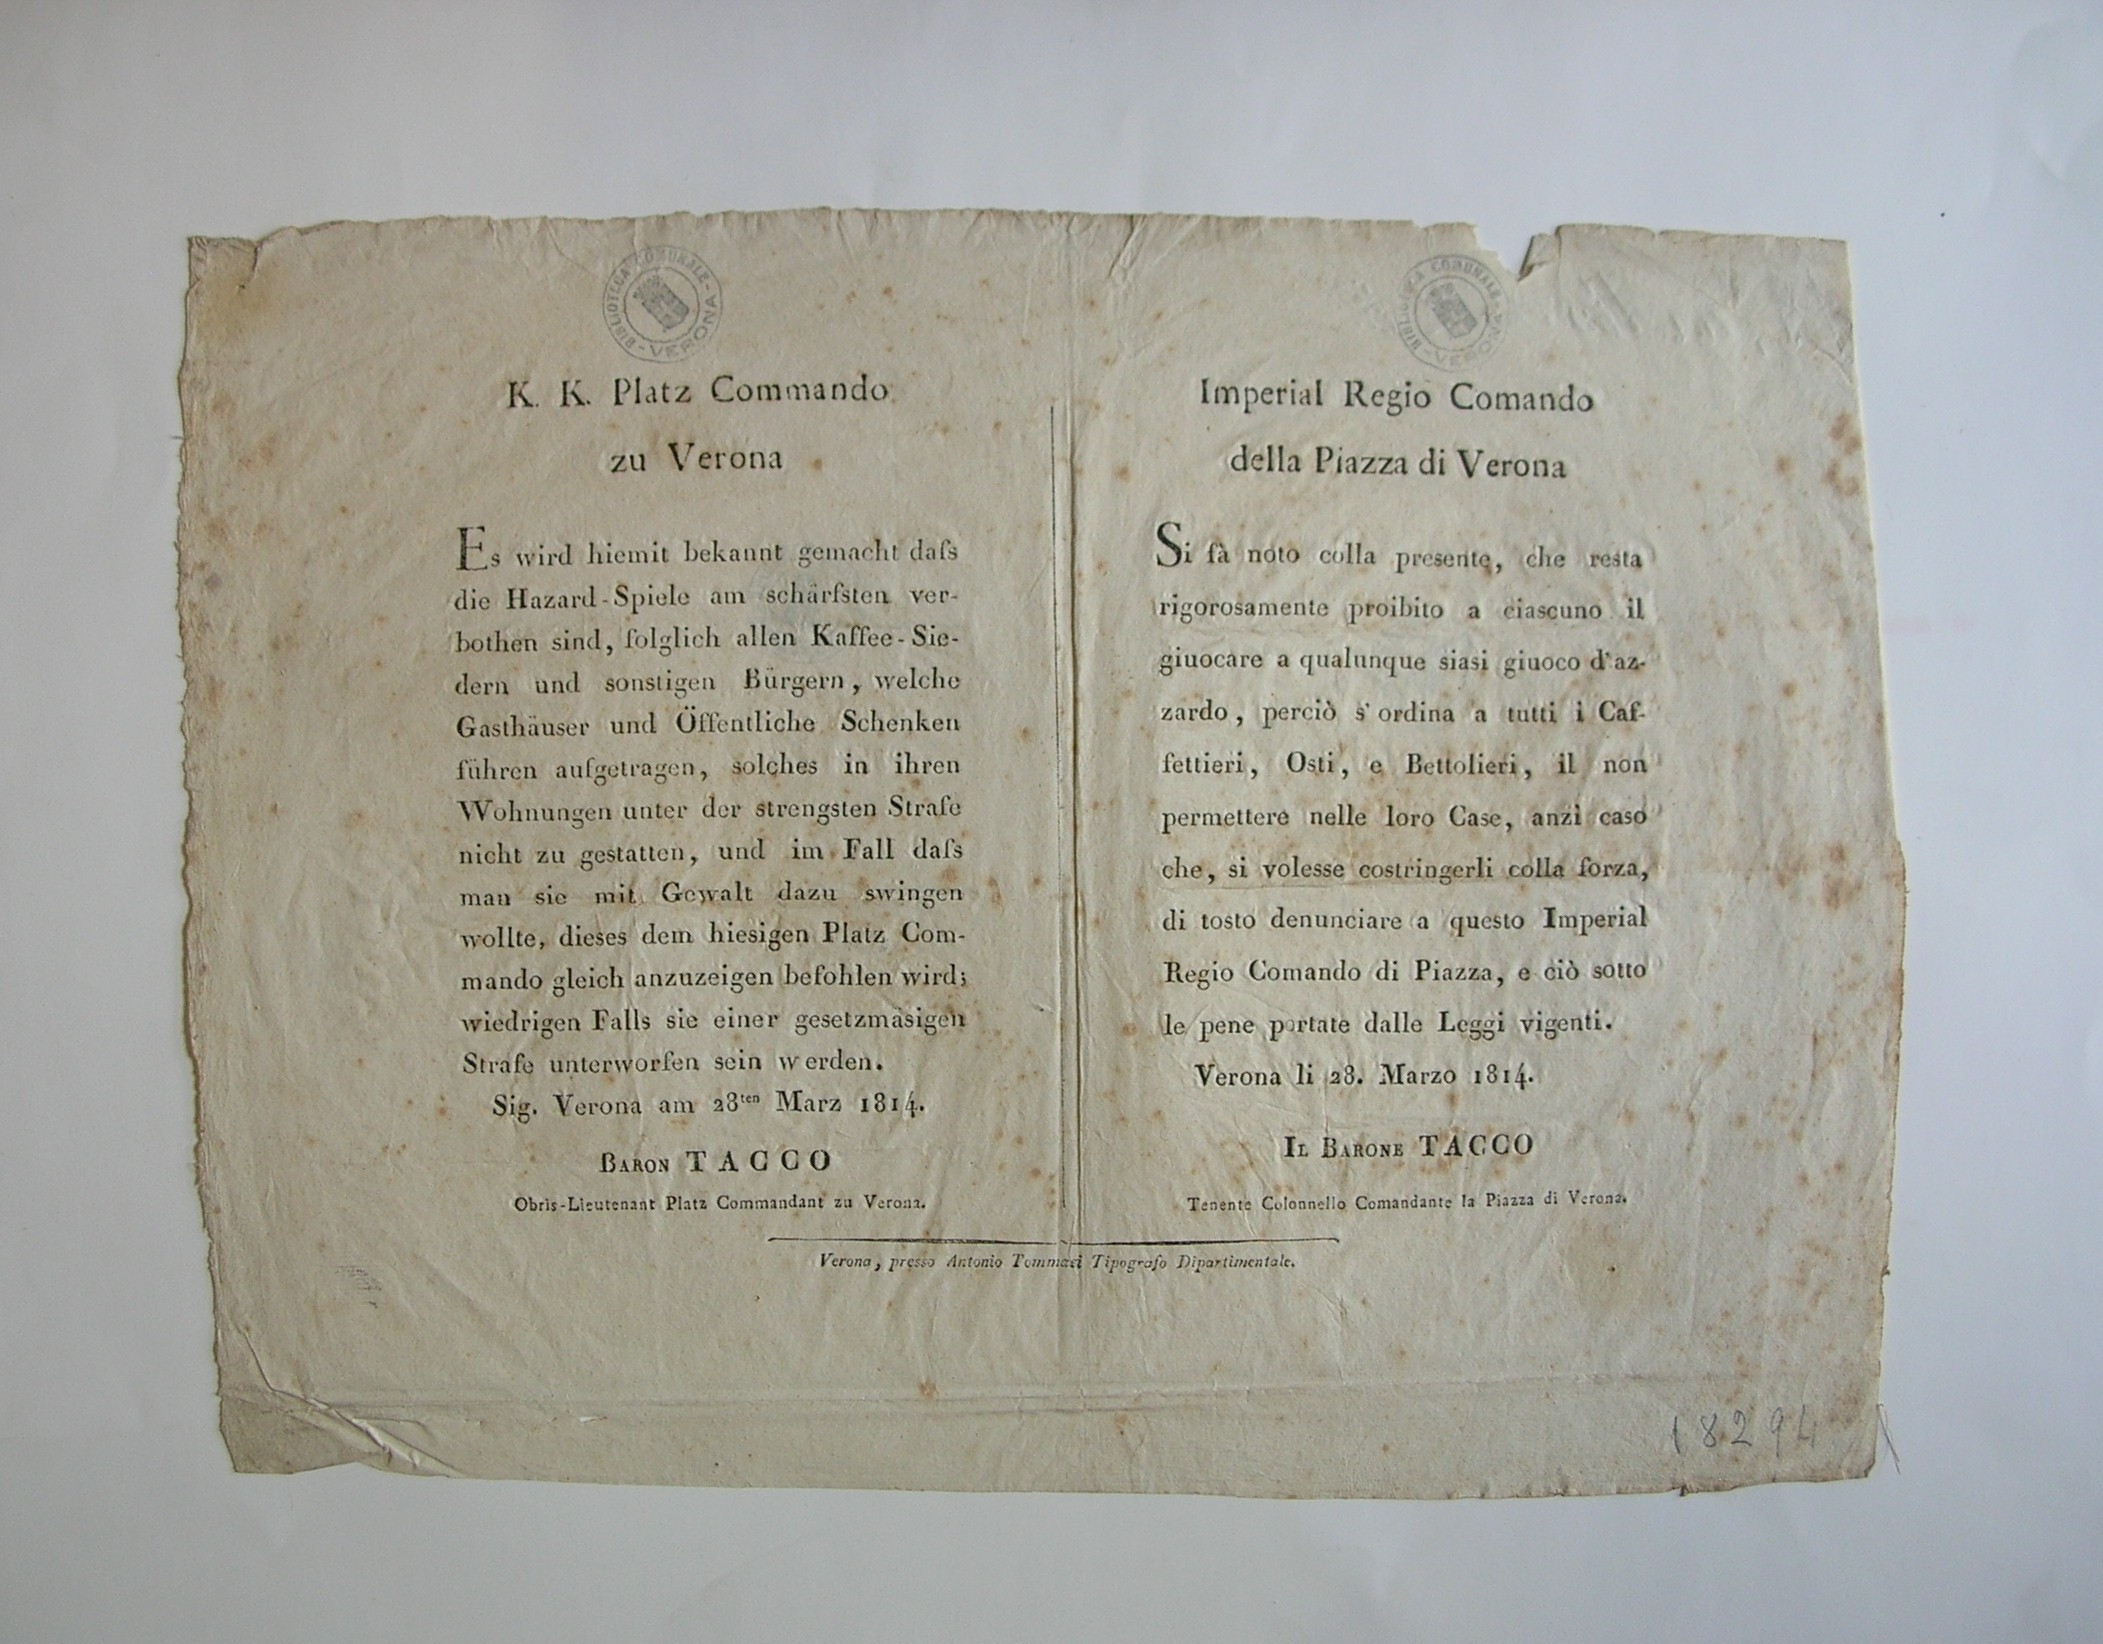 BIBLIOTECA COMUNALE - VERONA -
K. K. Platz Commando
zu Verona
Es wird hiemit bekannt gemacht daſs
die Hazard-Spiele am schärfsten ver-
bothen sind, folglich allen Kaffee-Sie-
dern und sonstigen Bürgern, welche
Gasthäuser und Öffentliche Schenken
führen aufgetragen, solches in ihren
Wohnungen unter der strengsten Strafe
nicht zu gestatten, und im Fall daſs
man sie mit Gewalt dazu swingen
wollte, dieses dem hiesigen Platz Com-
mando gleich anzuzeigen befohlen wird;
wiedrigen Falls sie einer gesetzmäsigen
Strafe unterworfen sein werden.
Sig. Verona am 28ten Marz 1814.
BARON TACCO
Obris-Lieutenant Platz Commandant zu Verona.
BIBLIOTECA COMUNALE - VERONA -
Imperial Regio Comando
della Piazza di Verona
Si fà noto colla presente, che resta
rigorosamente proibito a ciascuno il
giuocare a qualunque siasi giuoco d'az-
zardo, perciò s'ordina a tutti i Caf-
fettieri, Osti, e Bettolieri, il non
permettere nelle loro Case, anzi caso
che, si volesse costringerli colla forza,
di tosto denunciare a questo Imperial
Regio Comando di Piazza, e ciò sotto
le pene portate dalle Leggi vigenti.
Verona li 28. Marzo 1814.
IL BARONE TACCO
Tenente Colonnello Comandante la Piazza di Verona.
Verona, presso Antonio Tommasi Tipografo Dipartimentale.
18294